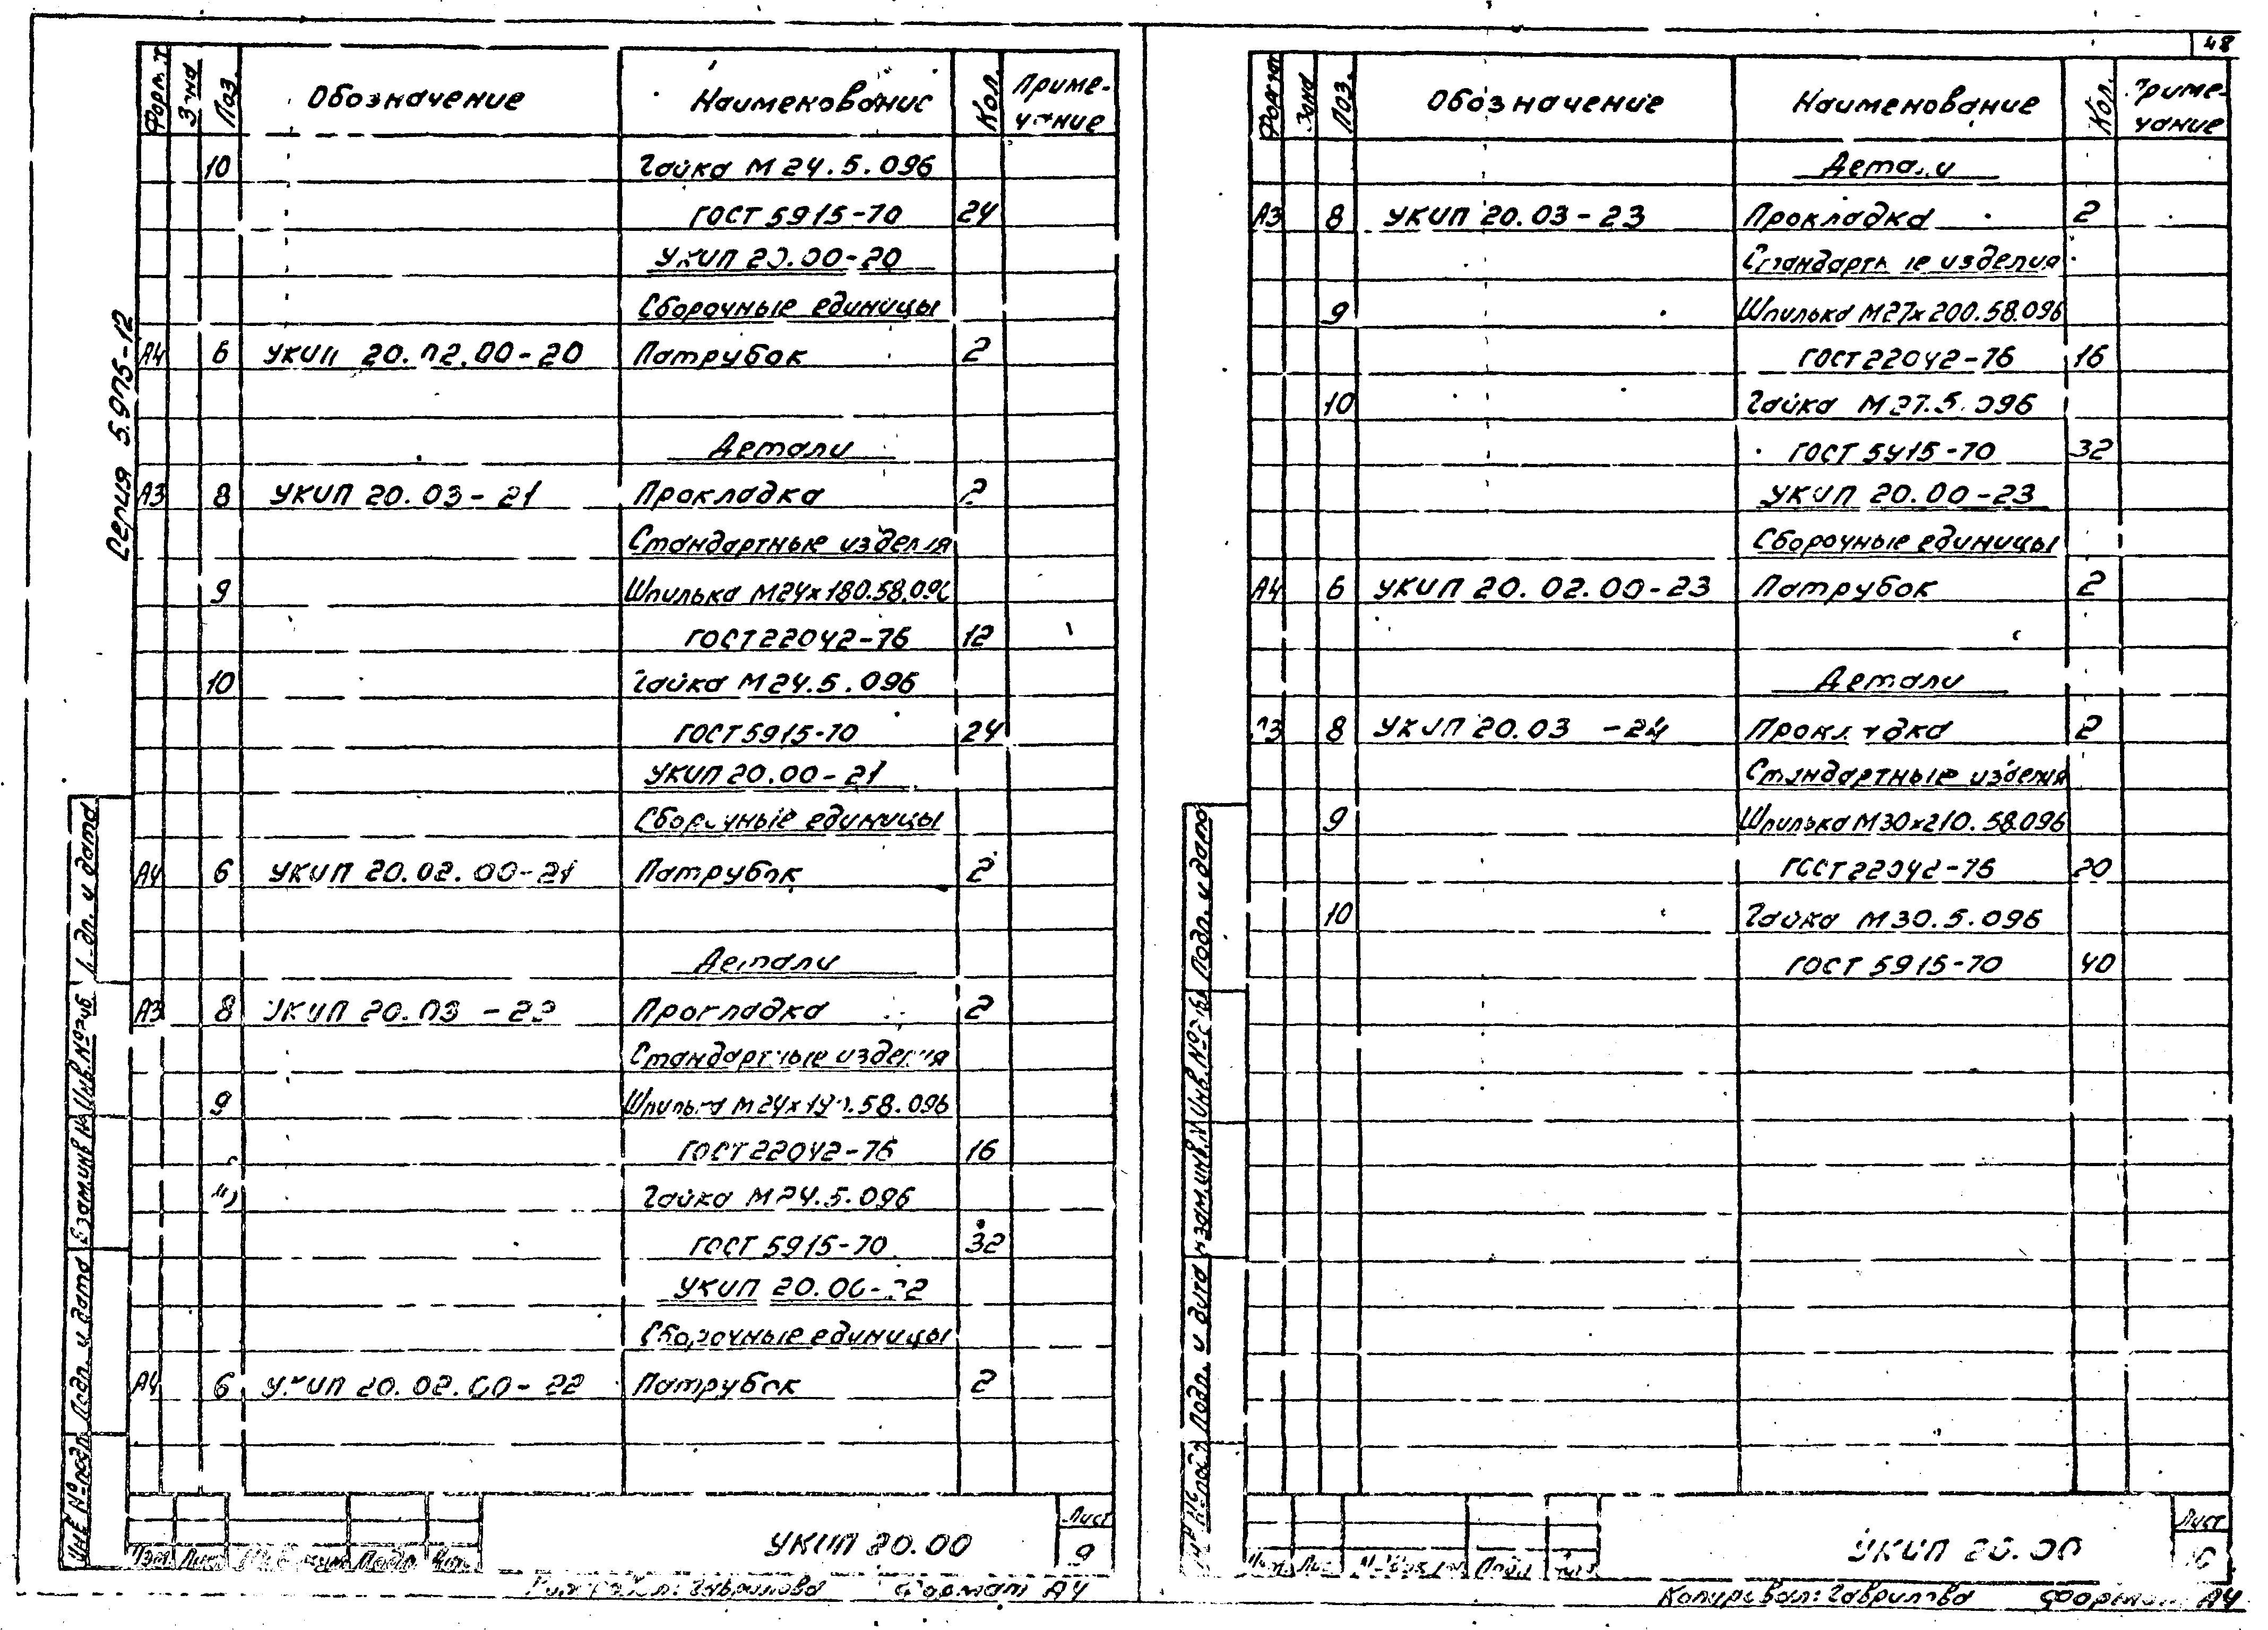 48
Серия 5.905-12
Обозначение Наименование Кол. Приме-
Поз. чание
10 Гайка М24.5.096
ГОСТ 5915-70 24
УКИП 20.00-20
Сборочные единицы
А4 6 УКИП 20.02.00-20 Патрубок 2
Детали
А3 8 УКИП 20.03-21 Прокладка 2
Стандартные изделия
9 Шпилька М24х180.58.096
ГОСТ 22042-76 12
10 Гайка М24.5.096
ГОСТ 5915-70 24
УКИП 20.00-21
Сборочные единицы
А4 6 УКИП 20.02.00-21 Патрубок 2
Детали
А3 8 УКИП 20.03 -22 Прокладка 2
Стандартные изделия
9 Шпилька
ГОСТ 22042-76 16
Гайка М24.5.096
ГОСТ 5915-70 32
УКИП 20.00-22
Сборочные единицы
А4 6 УКИП 20.02.00-22 Патрубок 2
Подп. и дата
Взам.инв.№
Подп. и дата
Инв.№ подл.
УКИП 20.00
Лист
9
Гаврилова Формат А4
Формат Зона Поз. Обозначение Наименование Кол. Приме-
чание
Детали
А3 8 УКИП 20.03-23 Прокладка 2
Стандартные изделия
9 Шпилька М27х200.58.096
ГОСТ 22042-76 16
10 Гайка М27.5.096
ГОСТ 5915-70 32
УКИП 20.00-23
Сборочные единицы
А4 6 УКИП 20.02.00-23 Патрубок 2
Детали
А3 8 УКИП 20.03 -24 Прокладка 2
Стандартные изделия
9 Шпилька М30х210.58.096
ГОСТ 22042-76 20
10 Гайка М30.5.096
ГОСТ 5915-70 40
Подп. и дата
Подп. и дата
УКИП 20.00
Лист
Копировал: Гаврилова Формат А4